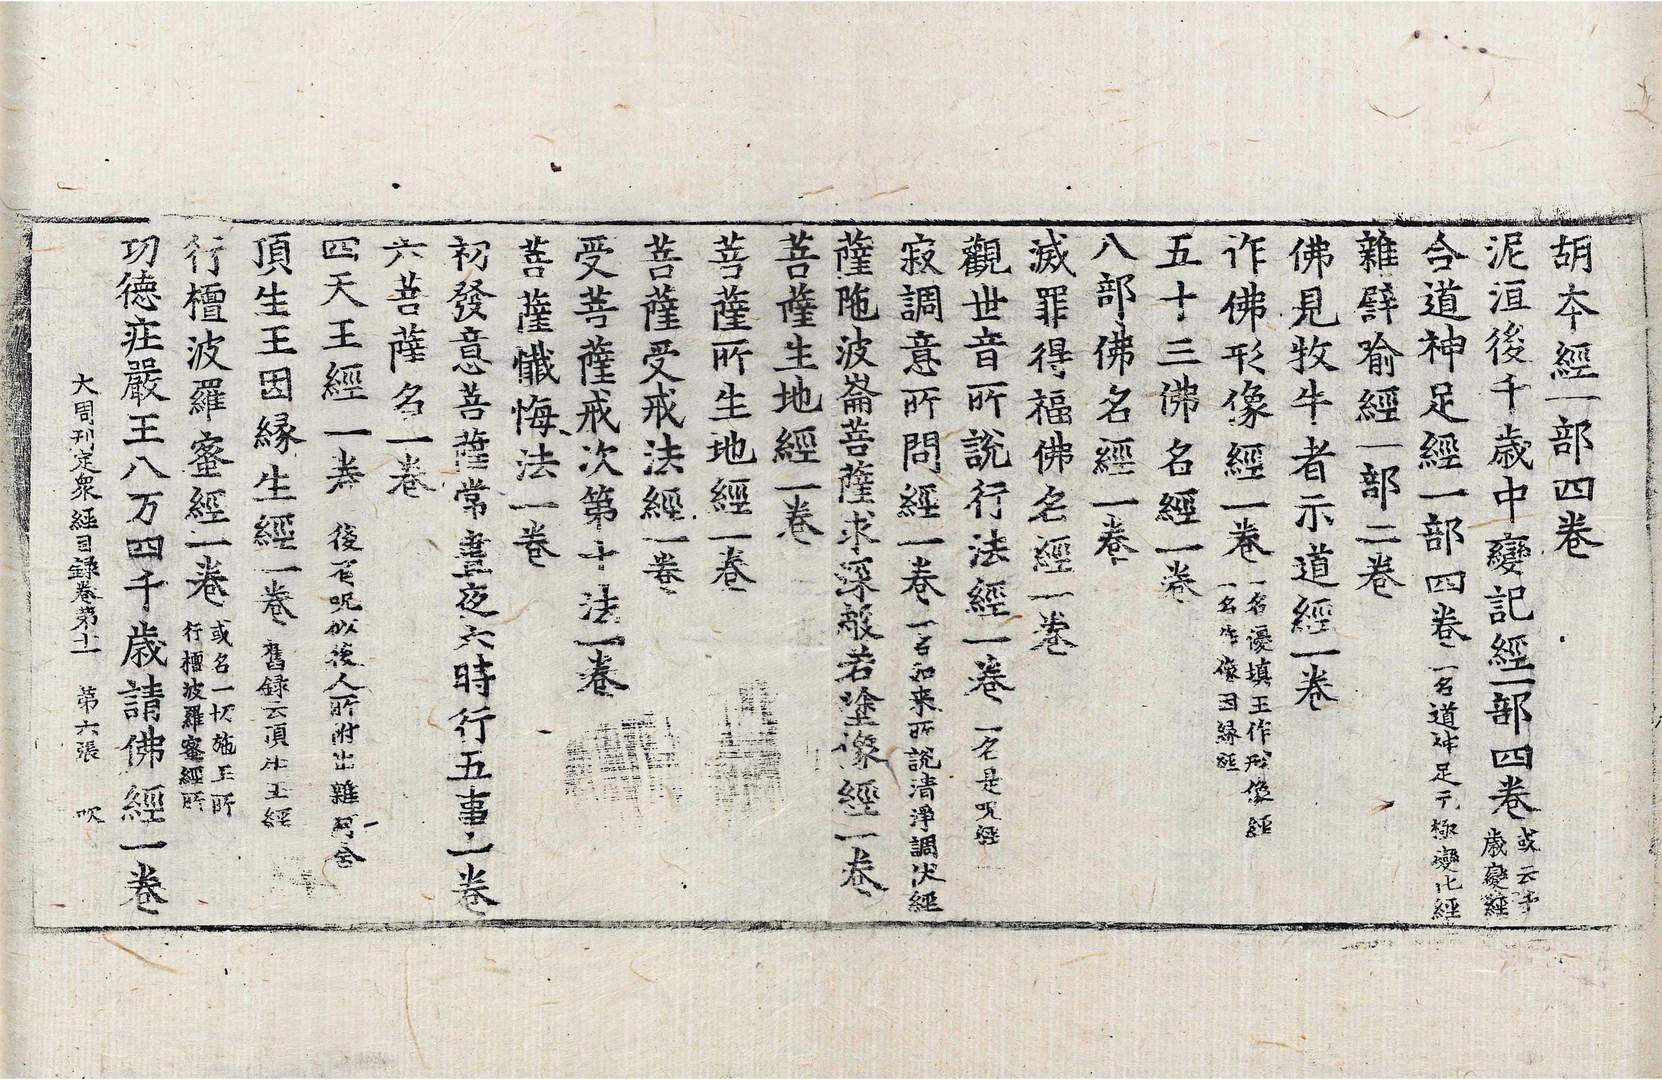 胡本經一部四卷
泥洹後千歲中變記經一部四卷 或云千歲變經
合道神足經一部四卷 一名道神足無極變化經
雜譬喻經一部二卷
佛見牧牛者示道經一卷
作佛形像經一卷 一名優填王作形像經 一名作像因緣經
五十三佛名經一卷
八部佛名經一卷
滅罪得福佛名經一卷
觀世音所說行法經一卷 一名是呪經
寂調意所問經一卷 一名如來所說清淨調伏經
薩陁波崙菩薩求深般若塗像經一卷
菩薩生地經一卷
菩薩所生地經一卷
菩薩受戒法經一卷
受菩薩戒次第十法一卷
菩薩懺悔法一卷
初發意菩薩常晝夜六時行五事一卷
六菩薩名一卷
四天王經一卷 後有呪似後人所附出雜阿含
頂生王因緣生經一卷 舊錄云頂生王經
行檀波羅蜜經一卷 或名一切施王所行檀波羅蜜經所
功德莊嚴王八万四千歲請佛經一卷
大周刊定衆經目錄卷第十一 第六張 吹